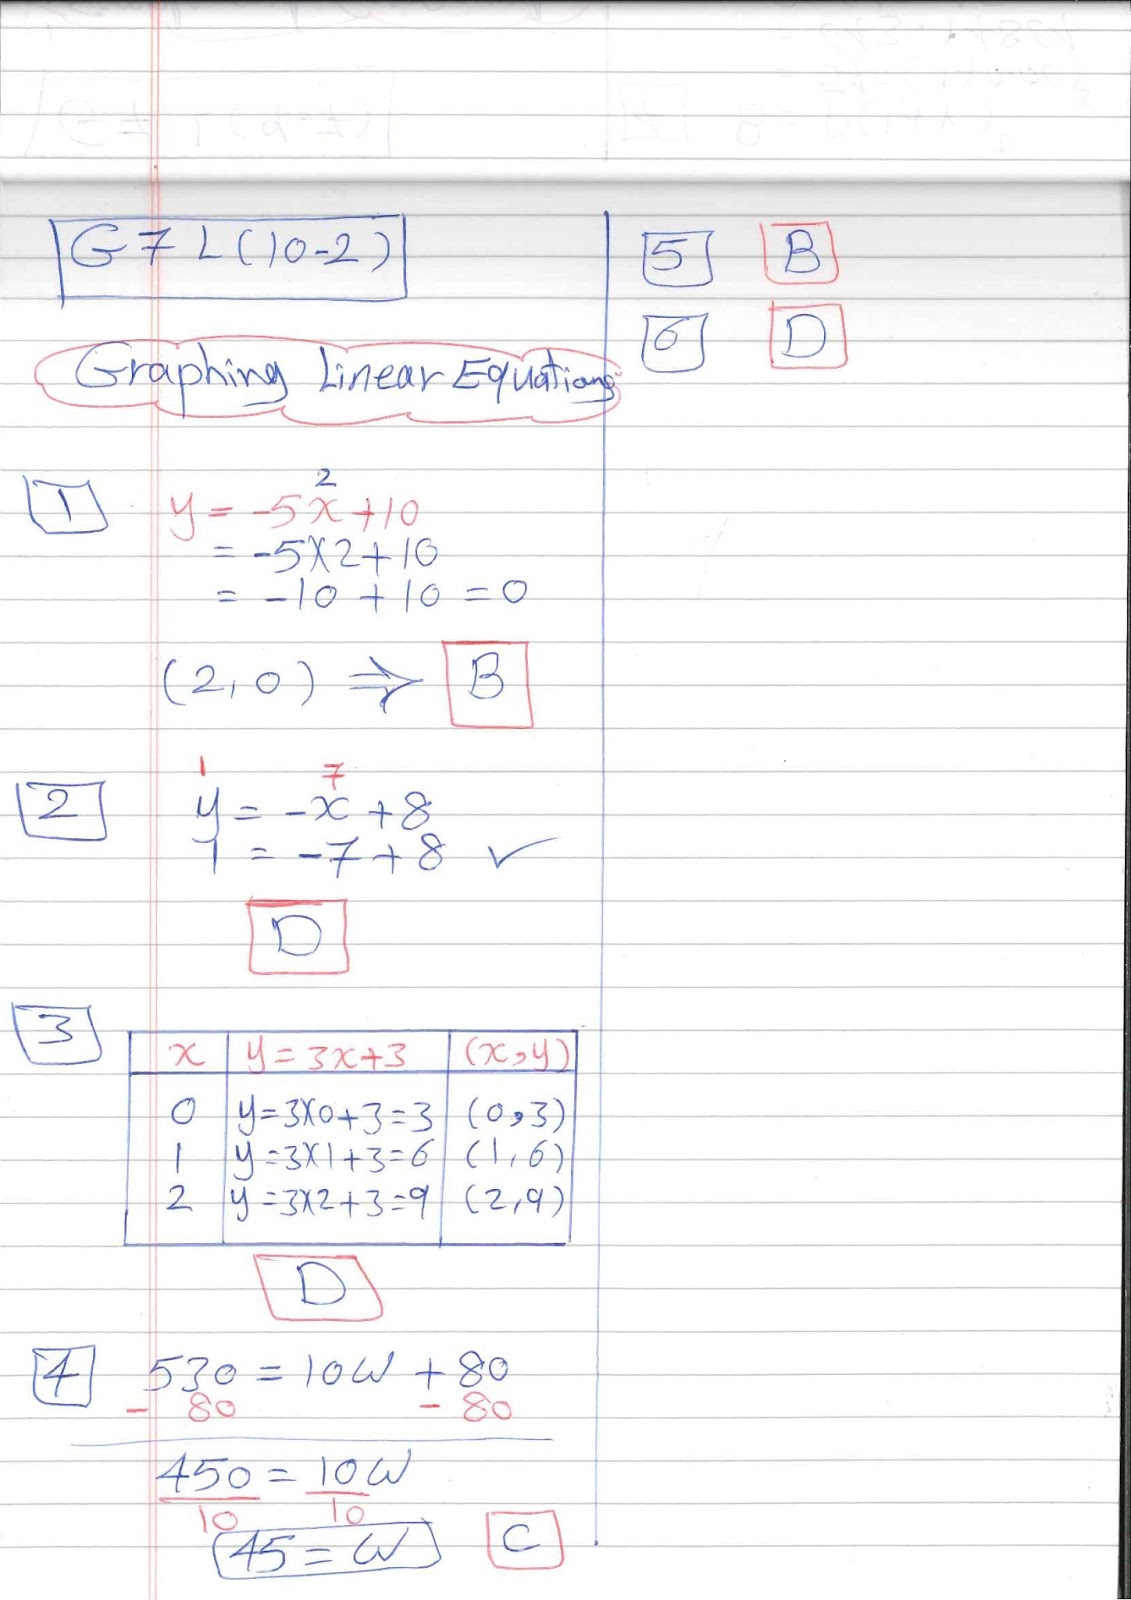 G7 L(10-2)
Graphing Linear Equations
1
2
y = -5x+10
= -5×2+10
= -10 + 10 = 0
(2,0) ⇒ B
2
1 7
y = -x +8
1 = -7+8 ✓
D
3
x y = 3x+3 (x,y)
0 y=3×0+3=3 (0,3)
1 y=3×1+3=6 (1,6)
2 y=3×2+3=9 (2,9)
D
4 530 = 10W + 80
- 80 - 80
450 = 10W
10 10
45 = W C
5 B
6 D